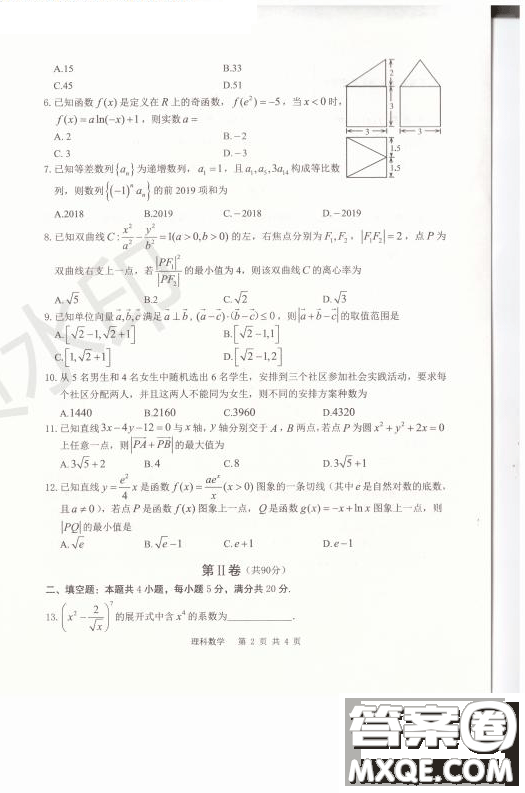 A.15 B.33
C.45 D.51
6.已知函数 f(x) 是定义在 R 上的奇函数， f(e²)=-5，当 x<0 时，
f(x)=a ln(-x)+1，则实数 a=
A. 2 B. -2
C. 3 D. -3
2
3
3
3
1.5
1.5
7.已知等差数列{aₙ}为递增数列， a₁=1，且 a₁,a₅,3a₁₄ 构成等比数
列，则数列{(-1)ⁿ aₙ}的前 2019 项和为
A.2018 B.2019 C.-2018 D.-2019
8.已知双曲线 C: x²/a² - y²/b² =1(a>0,b>0) 的左，右焦点分别为 F₁,F₂， |F₁F₂|=2，点 P 为
双曲线右支上一点，若 |PF₁|²/|PF₂| 的最小值为 4，则该双曲线 C 的离心率为
A.√5 B.2 C.√2 D.√3
9.已知单位向量 a,b,c 满足 a⊥b，(a-c)·(b-c)≤0，则|a+b-c|的取值范围是
A.[√2-1,√2+1] B.[√2-1,1]
C.[1,√2+1] D.[√2-1,2]
10.从 5 名男生和 4 名女生中随机选出 6 名学生，安排到三个社区参加社会实践活动，要求每
个社区分配两人，并且这两人不能同为女生，则不同的安排方案种数为
A.1440 B.2160 C.3960 D.4320
11.已知直线 3x-4y-12=0 与 x 轴，y 轴分别交于 A，B 两点,若点 P 为圆 x²+y²+2x=0
上任意一点，则 |PA+PB| 的最大值为
A.3√5+2 B. 4 C. 8 D.3√5+1
12.已知直线 y= e²/4 x 是函数 f(x)= aeˣ/x (x>0) 图象的一条切线（其中 e 是自然对数的底数，
且 a≠0），若点 P 是函数 f(x) 图象上一点， Q 是函数 g(x)=-x+ln x 图象上一点，则
|PQ|的最小值是
A. √e B. √e-1 C. e+1 D. e-1
第Ⅱ卷（共90分）
二、填空题：本题共 4 小题，每小题 5 分，满分共 20 分.
13. (x² - 2/√x)⁷ 的展开式中含 x⁴ 的系数为____________.
理科数学 第 2 页 共 4 页
水印
答案圈
MXQE.COM